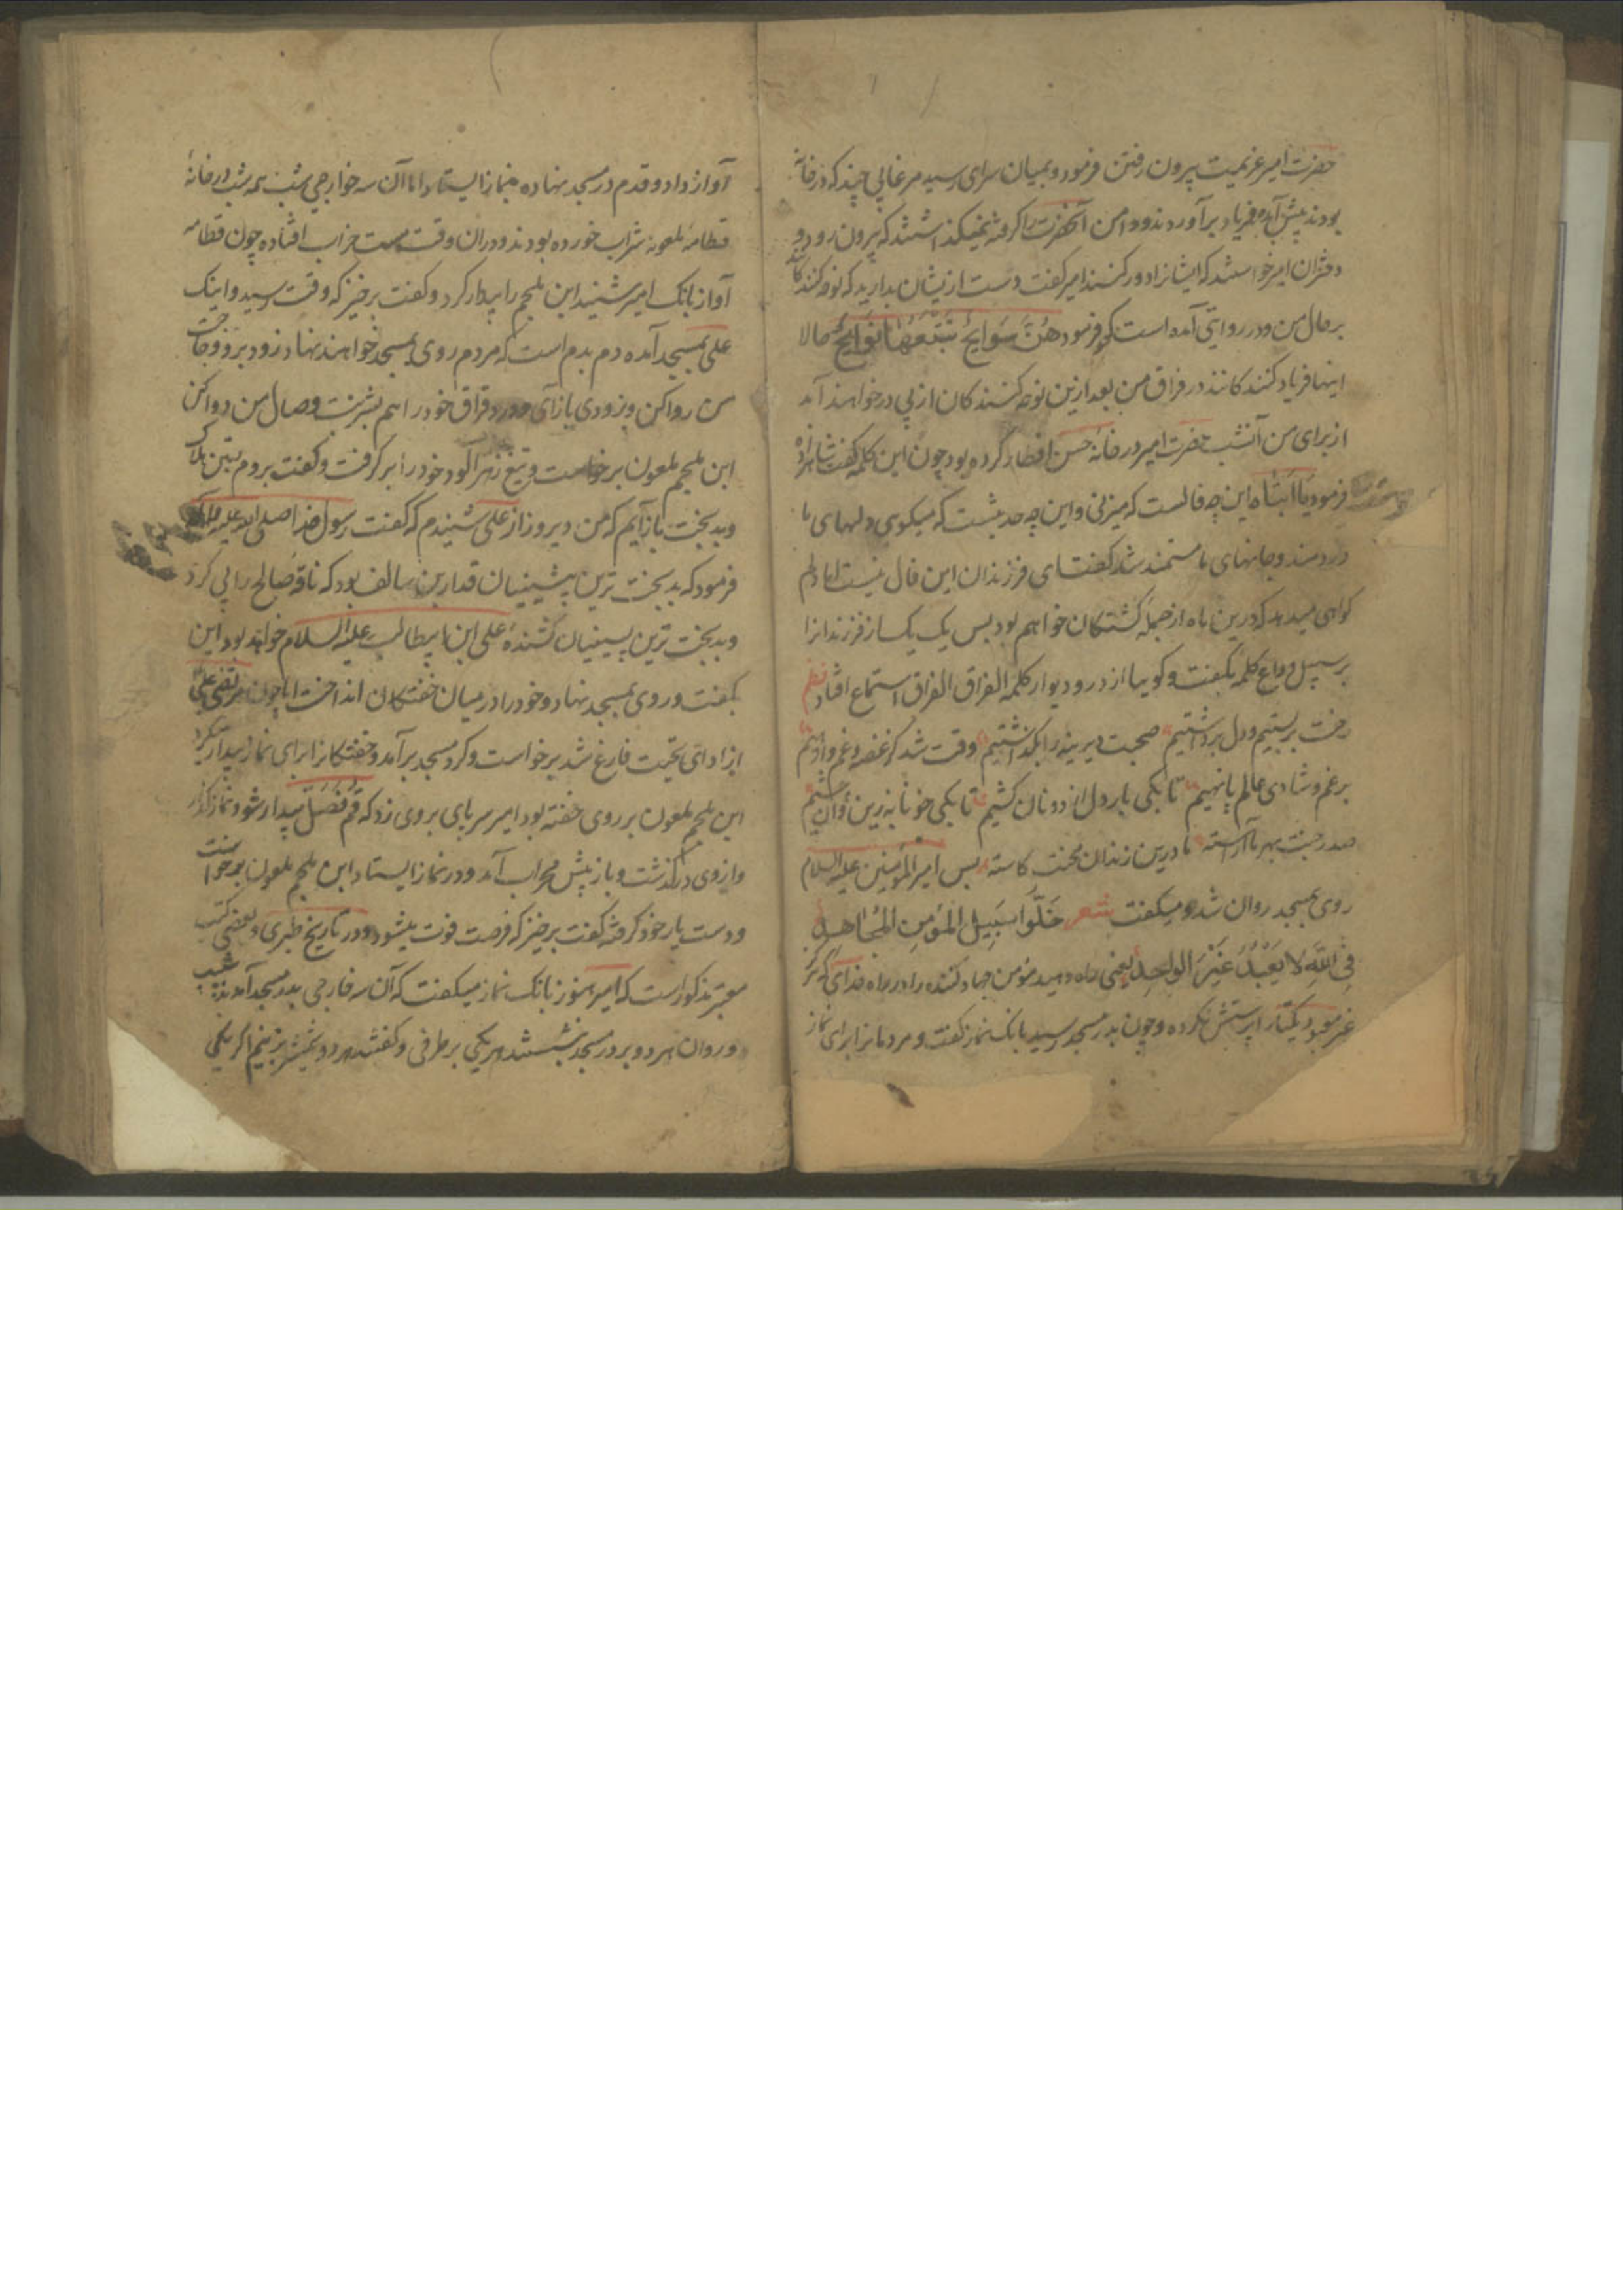 حضرت امیر عزیمت بیرون رفتن فرمود و بمیان سرای رسید مرغابی چند که در خانهٔ
بودند پیش آمده فریاد برآوردند و دامن آنحضرت را گرفته نمیگذاشتند که بیرون رود و
دختران امیر خواستند که ایشانرا دور کنند امیر گفت دست ازیشان بدارید که نوحه کنندگانند
بر حال من و در روایتی آمده است که فرمود هُنَّ صَوَایحُ تَتْبَعُهَا نَوَایحُ حالا
اینها فریاد کنندگانند در فراق من بعد ازین نوحه کنندگان از پی در خواهند آمد
از برای من آنشب حضرت امیر در خانهٔ حسن افطار کرده بود چون این کلمه گفت شاهزاده
فرمود یَا اَبَتَاه این چه فالست که میزنی و این چه حدیثست که میگوی دلهای ما
دردمند و جانهای ما مستمند شد گفت ای فرزندان این فال نیست اما دلم
گواهی میدهد که درین ماه از جمله کشتگان خواهم بود پس یک یک از فرزندانرا
بر سبیل وداع کلمه بگفت و گوییا از در و دیوار کلمهٔ الفراق الفراق استماع افتاد نظم
رخت بربستیم و دل برداشتیم صحبت دیرینه را بگذاشتیم وقت شد کز غصه و غم وارهیم
بر غم و شادی عالم پا نهیم تا بکی بار دل از دونان کشیم تا بکی خونابه زین و آن چشیم
صدر جنت بهر ما آراسته ما درین زندان محنت کاسته پس امیرالمؤمنین علیه السلام
روی بمسجد روان شد و میگفت شعر خَلُّوا سَبِیلَ الْمُؤمِنِ الْمُجَاهِدِ
فِی اللّهِ لَا یَعْبُدُ غَیْرَ الْوَاحِدِ یعنی راه دهید مؤمن جهاد کننده را در راه خدای که هرگز
غیر معبود یکتا را پرستش نکرده و چون بدر مسجد رسید بانک نماز گفت و مردمانرا برای نماز
آواز داد و قدم در مسجد نهاده بنماز ایستاد اما آن سه خوارجی شب همه شب در خانهٔ
قطامهٔ ملعونه شراب خورده بودند و دران وقت مست خراب افتاده چون قطامه
آواز بانک امیر شنید ابن ملجم را بیدار کرد و گفت برخیز که وقت رسید و اینک
علی بمسجد آمده دم بدم است که مردم روی بمسجد خواهند نهاد زود برو و حاجت
من روا کن و بزودی باز آی و درد فراق خود را هم بشربت وصال من دوا کن
ابن ملجم ملعون برخاست و تیغ زهرآلود خود را برگرفت و گفت بروم
و بدبخت باز آیم که من دیروز از علی شنیدم که گفت رسول خدا صلی الله علیه و آله
فرمود که بدبخت ترین پیشینیان قدار بن سالف بود که ناقهٔ صالح را پی کرد
و بدبخت ترین پسینیان کشندهٔ علی ابن ابیطالب علیه السلام خواهد بود این
بگفت و روی بمسجد نهاد و خود را در میان خفتگان انداخت اما چون مرتضی علی
از ادای تحیت فارغ شد برخواست و گرد مسجد برآمد و خفتگانرا برای نماز بیدار میکرد
ابن ملجم ملعون بر روی خفته بود امیر سر پای بر وی زد که قُمْ فَصَلِّ بیدار شو و نماز گذار
و از وی درگذشت و باز پیش محراب آمد و در نماز ایستاد ابن ملجم ملعون برخواست
و دست یار خود گرفته گفت برخیز که فرصت فوت میشود و در تاریخ طبری و بعضی کتب
معتبر مذکور است که امیر هنوز بانک نماز میگفت که آن سه خارجی بدر مسجد آمدند شبیب
و وردان هر دو بر در مسجد نشستند هر یکی بر طرفی و گفتند هر دو شمشیر بزنیم اگر یکی